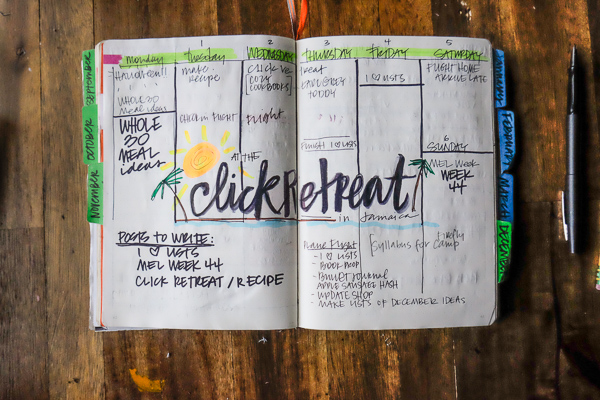 1
2
3
4
5
Monday
Tuesday
WEDNESDAY
THURSDAY
FRIDAY
SATURDAY
SEPTEMBER
OCTOBER
NOVEMBER
FEBRUARY
MARCH
DECEMBER
HALLOWEEN!!
WHOLE 30
Meal ideas
WHOLE
30
MEAL
ideas
make
RECIPE
CHECK IN FLIGHT
COOKBOOKS]
Flight
treat
EARL GREY
TODDY
FINISH I ♡ LISTS
I ♡ LISTS
FLIGHT HOME
ARRIVE LATE
6
SUNDAY
MEL WEEK
WEEK
44
AT THE
click Retreat
in Jamaica
POSTS TO WRITE:
I ♡ LISTS
MEL WEEK 44
CLICK RETREAT / RECIPE
Plane Flight
- I ♡ LISTS
- BOOK PROP
- Bullet Journal
APPLE SAUSAGE HASH
- UPDATE SHOP
- MAKE LISTS OF DECEMBER IDEAS
[Syllabus for Camp